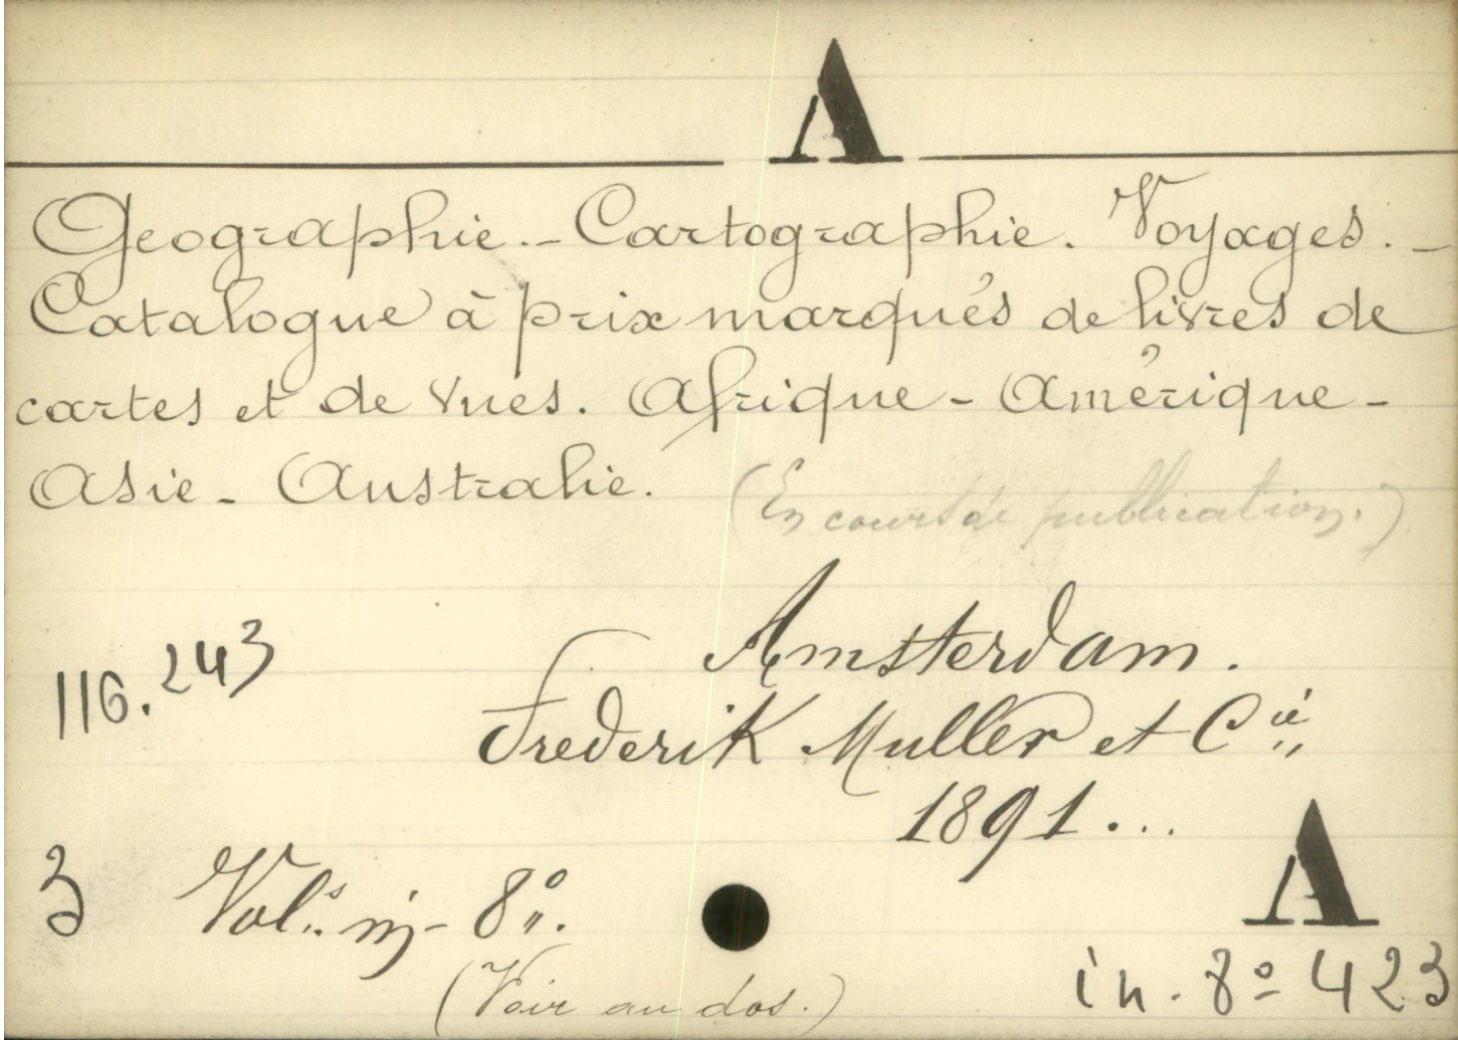 A
Geographie.- Cartographie. Voyages. -
Catalogue à prix marqués de livres de
cartes et de vues. Afrique - Amérique -
Asie - Australie. (En cours de publication.)
Amsterdam.
116.243
Frederik Muller et Cie
1891...
A
3 Vols. in- 8º.
in. 8º 423
(Voir au dos.)